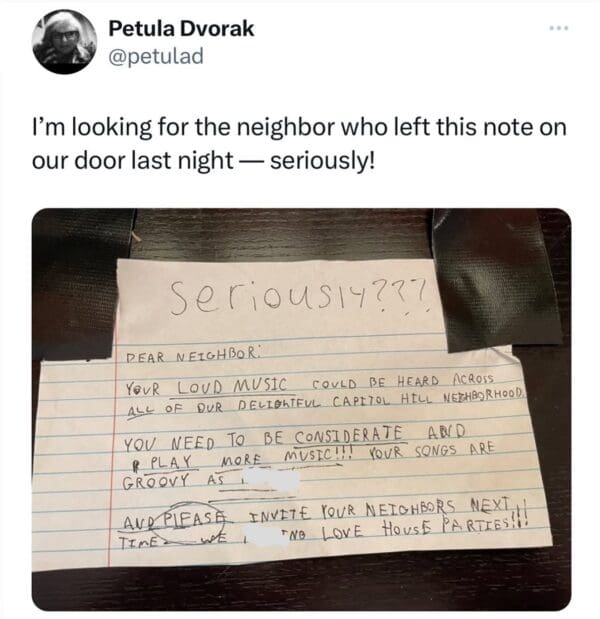 Petula Dvorak
@petulad
I'm looking for the neighbor who left this note on
our door last night — seriously!
Seriously???
DEAR NEIGHBOR:
YOUR LOUD MUSIC COULD BE HEARD ACROSS
ALL OF OUR DELIGHTFUL CAPITOL HILL NEIGHBORHOOD.
YOU NEED TO BE CONSIDERATE AND
PLAY MORE MUSIC!!! YOUR SONGS ARE
GROOVY AS
AND PLEASE INVITE YOUR NEIGHBORS NEXT
TIME WE LOVE HOUSE PARTIES!!!